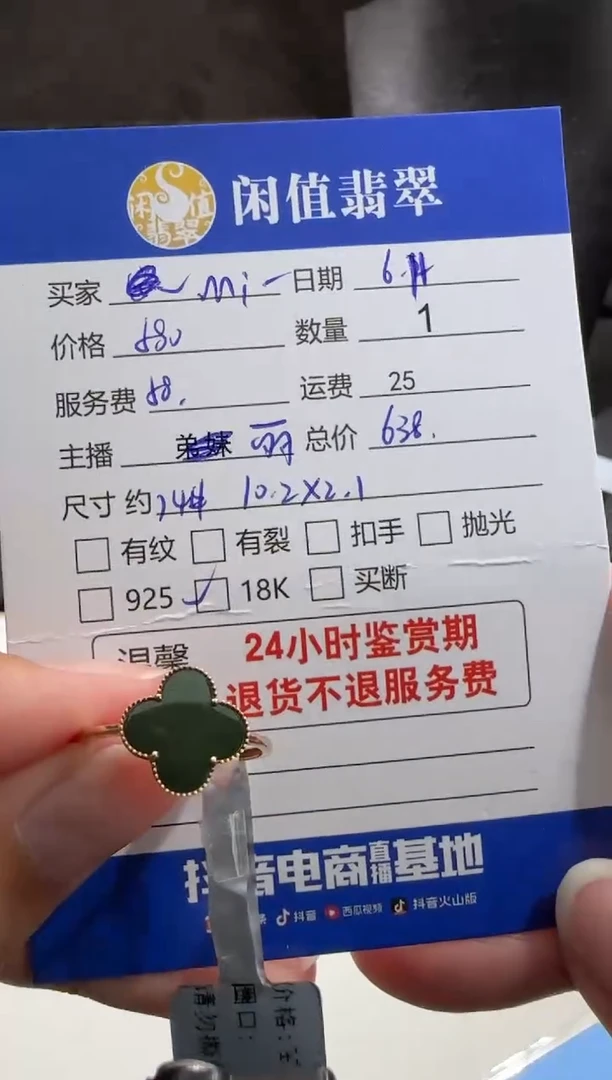 闲值翡翠
闲值翡翠
买家 Mi 日期 6.
价格 580 数量 1
服务费 58. 运费 25
主播 弟妹 丽 总价 638.
尺寸 约 14# 10.2X2.1
有纹 有裂 扣手 抛光
925 ✓ 18K 买断
温馨 24小时鉴赏期
退货不退服务费
抖音电商直播基地
条 抖音 西瓜视频 抖音火山版
价格:
圈口:
请勿